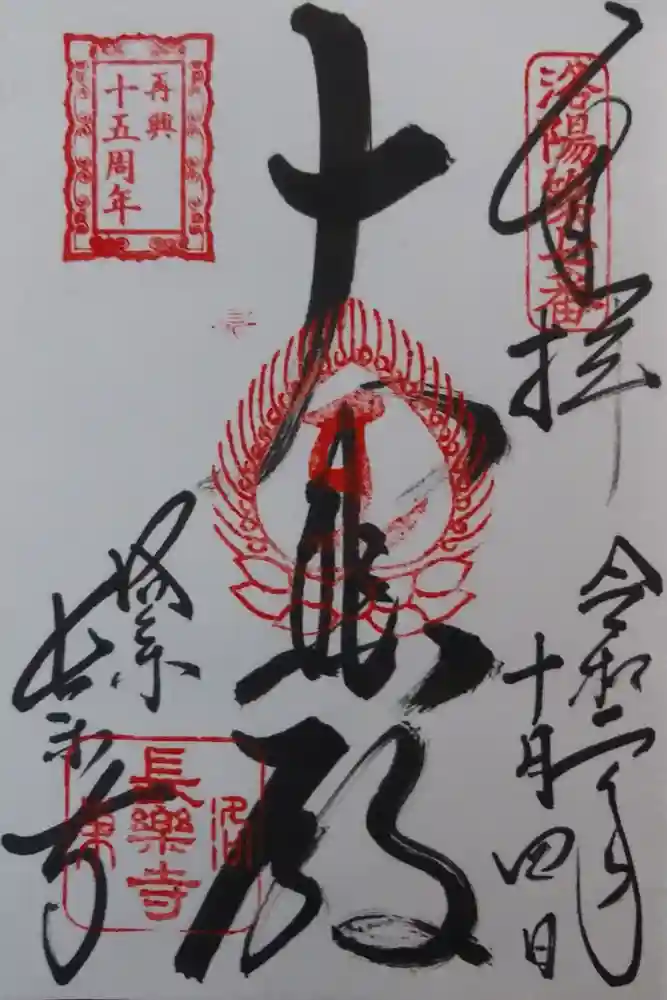 洛陽第七番
奉拝
令和二年
十月四日
大悲殿
再興
十五周年
長楽寺
洛
長樂寺
東